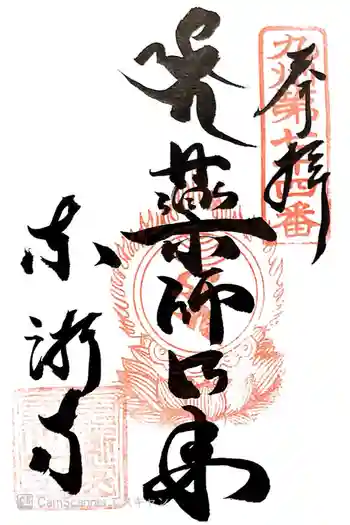 奉拝
九州第十四番
藥師如来
東漸寺
CamScanner でスキャン